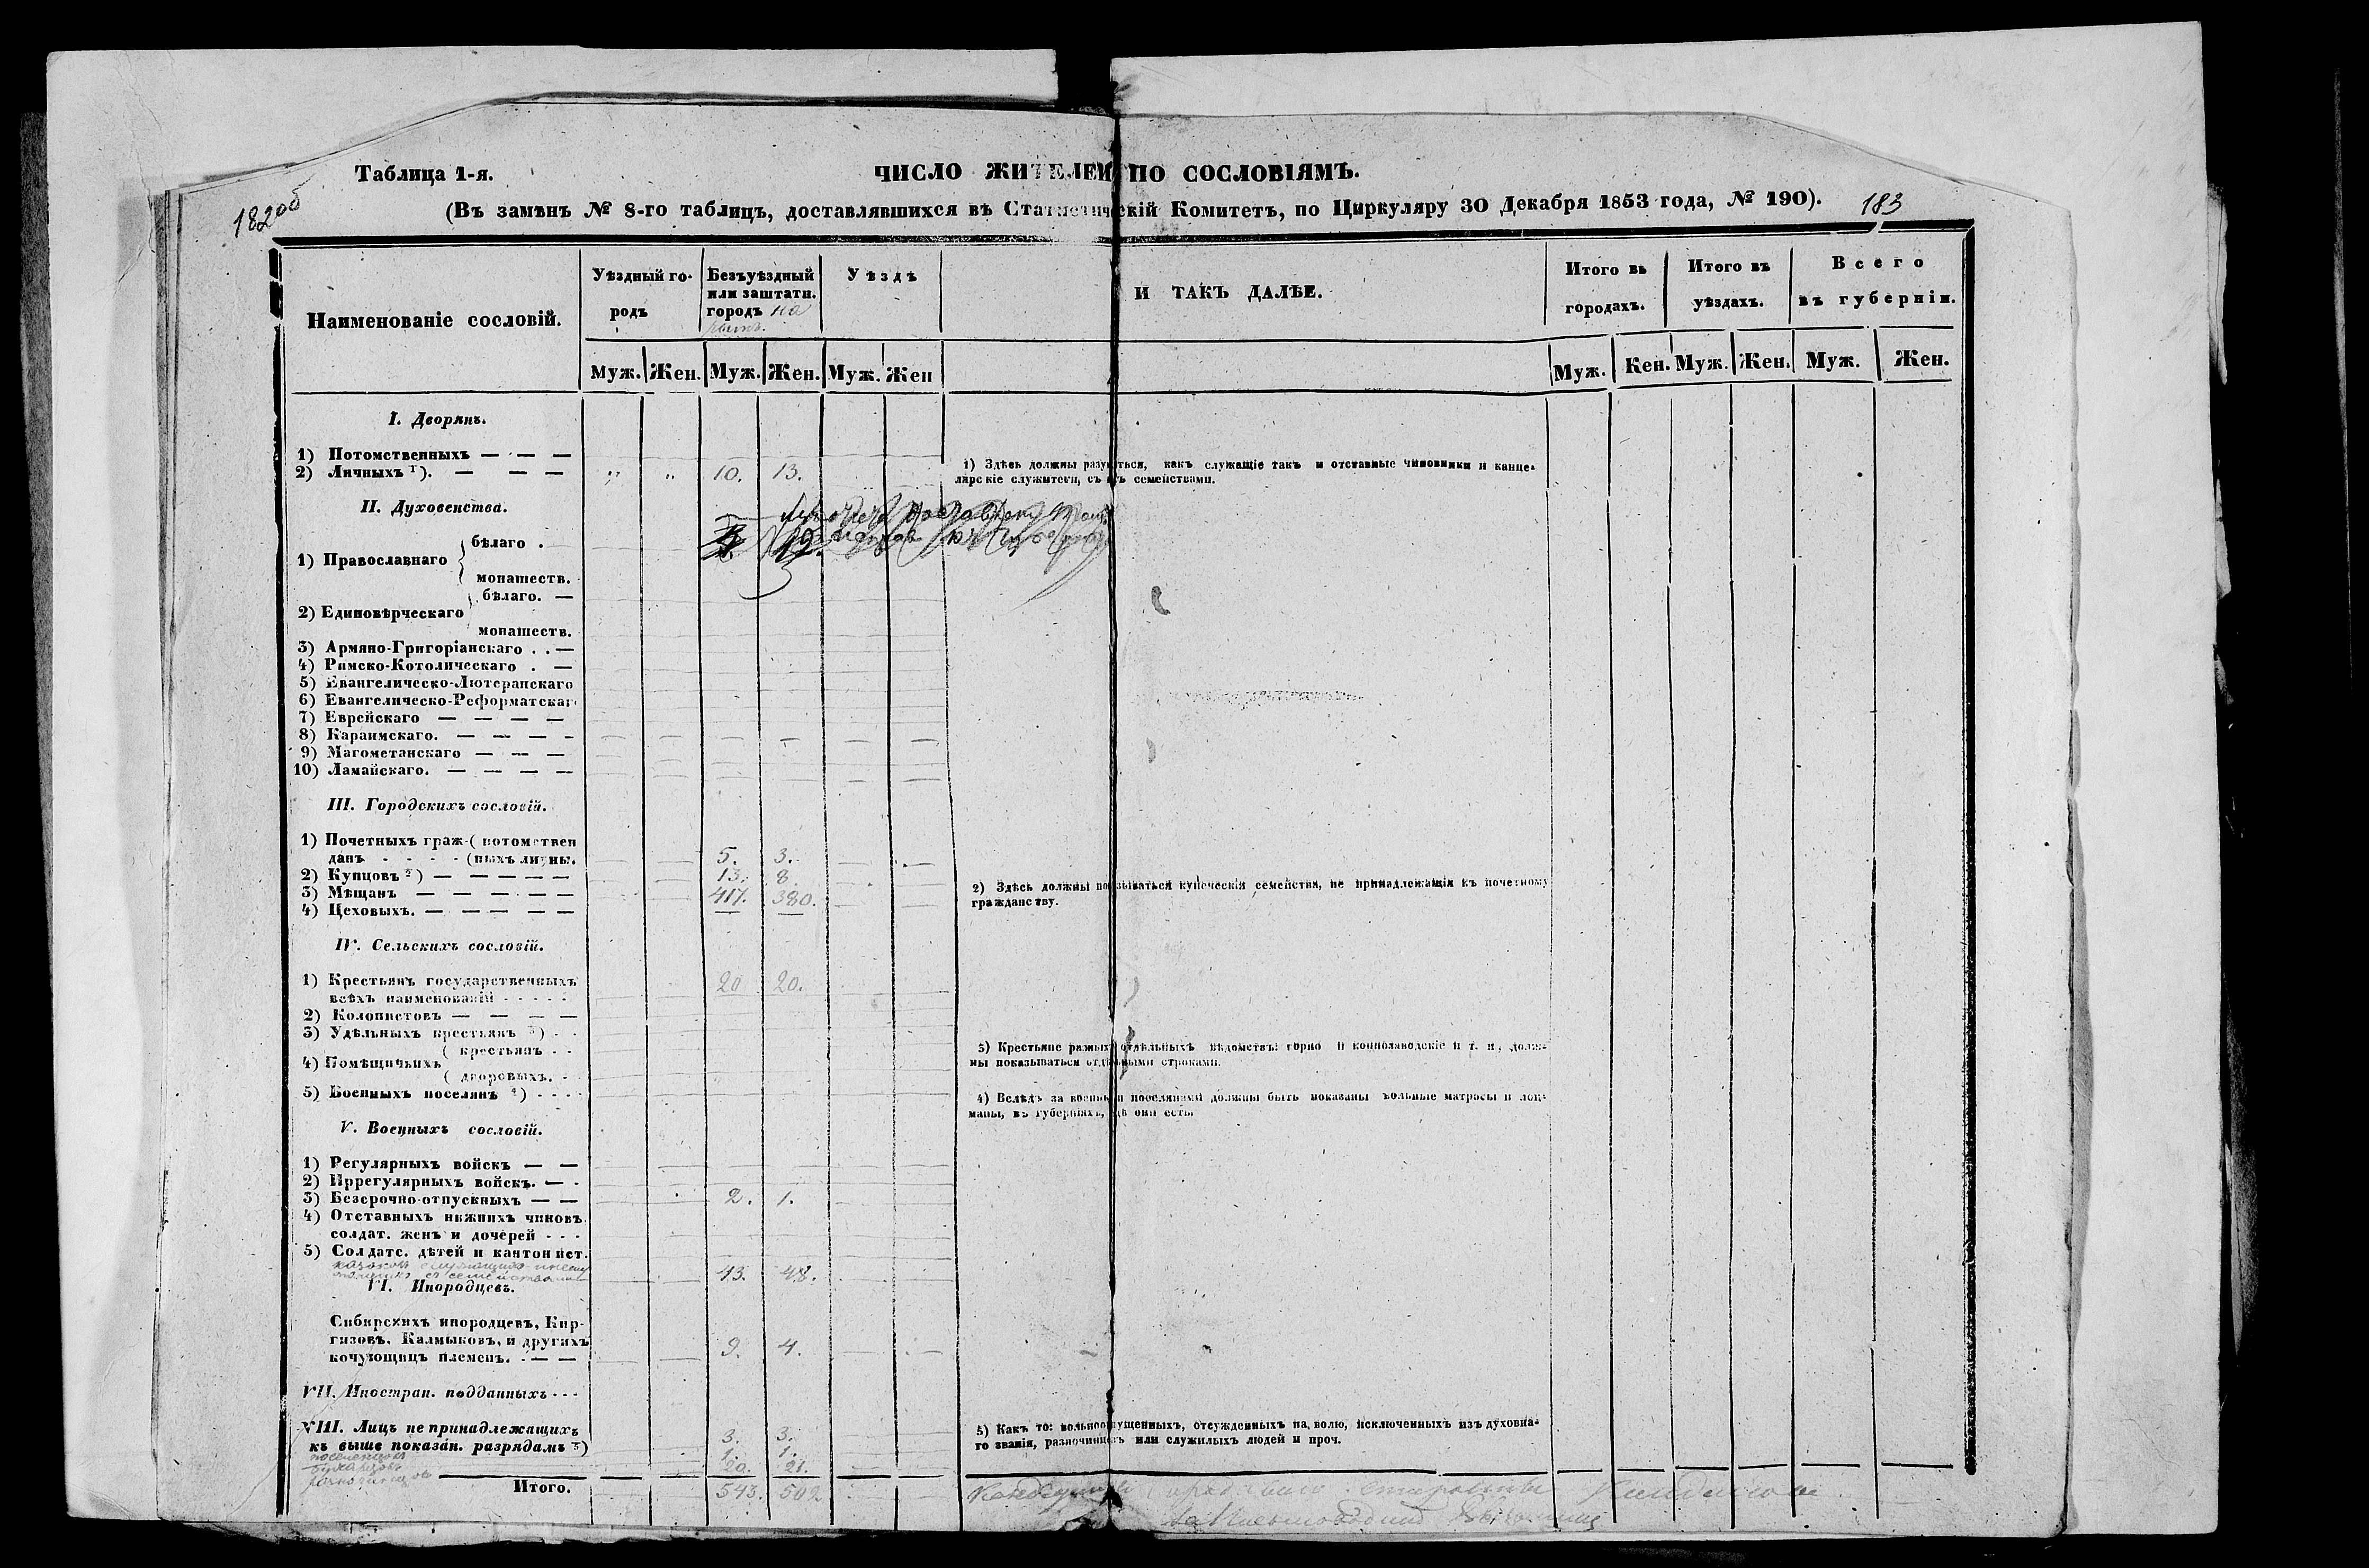 Таблица 1-я.
ЧИСЛО ЖИТЕЛЕЙ ПО СОСЛОВІЯМЪ.
182об
(Въ замѣнъ № 8-го таблицъ, доставлявшихся въ Статистическій Комитетъ, по Циркуляру 30 Декабря 1853 года, № 190).
183
Наименованіе сословій.
Уѣздный го-
родъ
Безъуѣздный
или заштатн.
городъ На
рымъ.
Уѣздъ
И ТАКЪ ДАЛѢЕ.
Итого въ
городахъ.
Итого въ
уѣздахъ.
Всего
въ губерніи.
Муж. Жен. Муж. Жен. Муж. Жен Муж. Жен. Муж. Жен. Муж. Жен.
I. Дворянъ.
1) Потомственныхъ — — —
2) Личныхъ 1). — — — „ „ 10. 13.
1) Здѣсь должны разумѣться, какъ служащіе такъ и отставные чиновники и канце-
лярскіе служители, съ ихъ семействами.
II. Духовенства.
1) Православнаго
бѣлаго .
монашеств.
2) Единовѣрческаго
бѣлаго. —
монашеств.
3) Армяно-Григоріанскаго . . —
4) Римско-Котолическаго . —
5) Евангелическо-Лютеранскаго
6) Евангелическо-Реформатскаго
7) Еврейскаго — — — —
8) Караимскаго. — — — —
9) Магометанскаго — — —
10) Ламайскаго. — — — —
III. Городскихъ сословій.
1) Почетныхъ граж-( потомствен
данъ - - - - (ныхъ личны. 5. 3.
2) Купцовъ 2) — — — — — 13. 8
3) Мѣщанъ — — — — — 417. 380.
4) Цеховыхъ. — — — — — — —
2) Здѣсь должны показываться купеческія семейства, не принадлежащія къ почетному
гражданству.
IV. Сельскихъ сословій.
1) Крестьянъ государственныхъ 20 20.
всѣхъ наименованій - - - - -
2) Колонистовъ — — — —
3) Удѣльныхъ крестьянъ 3) - -
4) Помѣщичьихъ
( крестьянъ - -
( дворовыхъ. -
5) Военныхъ поселянъ 4) - - - -
3) Крестьяне разныхъ отдѣльныхъ вѣдомствъ: горно и коннозаводскіе и т. п, долж-
ны показываться отдѣльными строками.
4) Вслѣдъ за военными поселянами должны быть показаны вольные матросы и лоц-
маны, въ губерніяхъ, гдѣ они есть.
V. Военныхъ сословій.
1) Регулярныхъ войскъ — —
2) Иррегулярныхъ войскъ. — -
3) Безсрочно-отпускныхъ — — 2. 1.
4) Отставныхъ нижнихъ чиновъ
солдат. женъ и дочерей - - -
5) Солдатс. дѣтей и кантонист.
43. 48.
VI. Инородцевъ.
Сибирскихъ инородцевъ, Кир-
гизовъ, Калмыковъ, и другихъ
кочующицъ племенъ. - — — 9. 4.
VII. Иностран. подданныхъ - - -
VIII. Лицъ не принадлежащихъ
къ выше показан. разрядамъ 5) 3. 3.
1. 1.
20. 21.
5) Какъ то: вольноотпущенныхъ, отсужденныхъ на волю, исключенныхъ изъ духовна-
го званія, разночинцевъ или служилыхъ людей и проч.
Итого. 543. 502